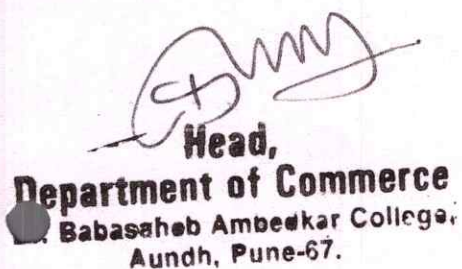 Head,
Department of Commerce
Babasaheb Ambedkar College,
Aundh, Pune-67.